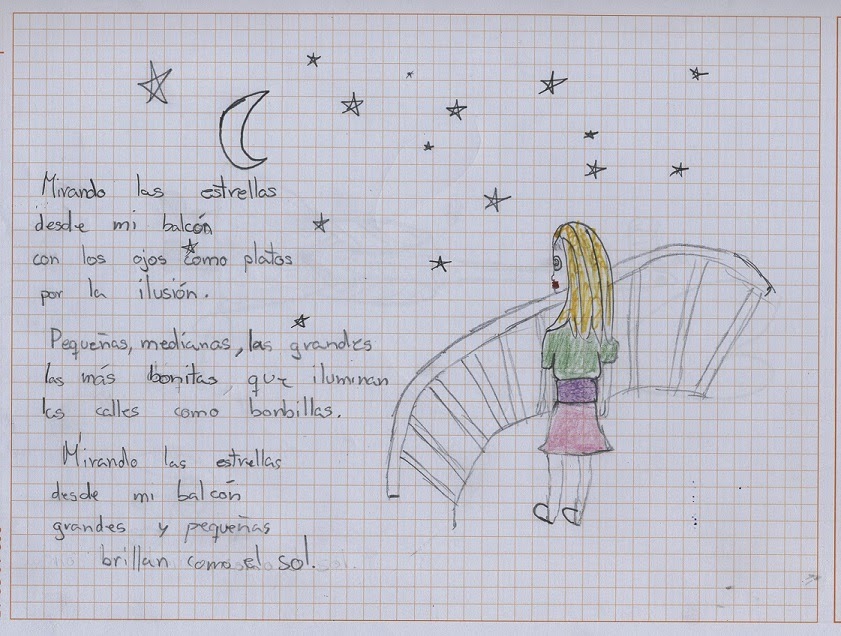 Mirando las estrellas
desde mi balcón
con los ojos como platos
por la ilusión.
Pequeñas, medianas, las grandes
las más bonitas, que iluminan
las calles como bonbillas.
Mirando las estrellas
desde mi balcón
grandes y pequeñas
brillan como el sol.